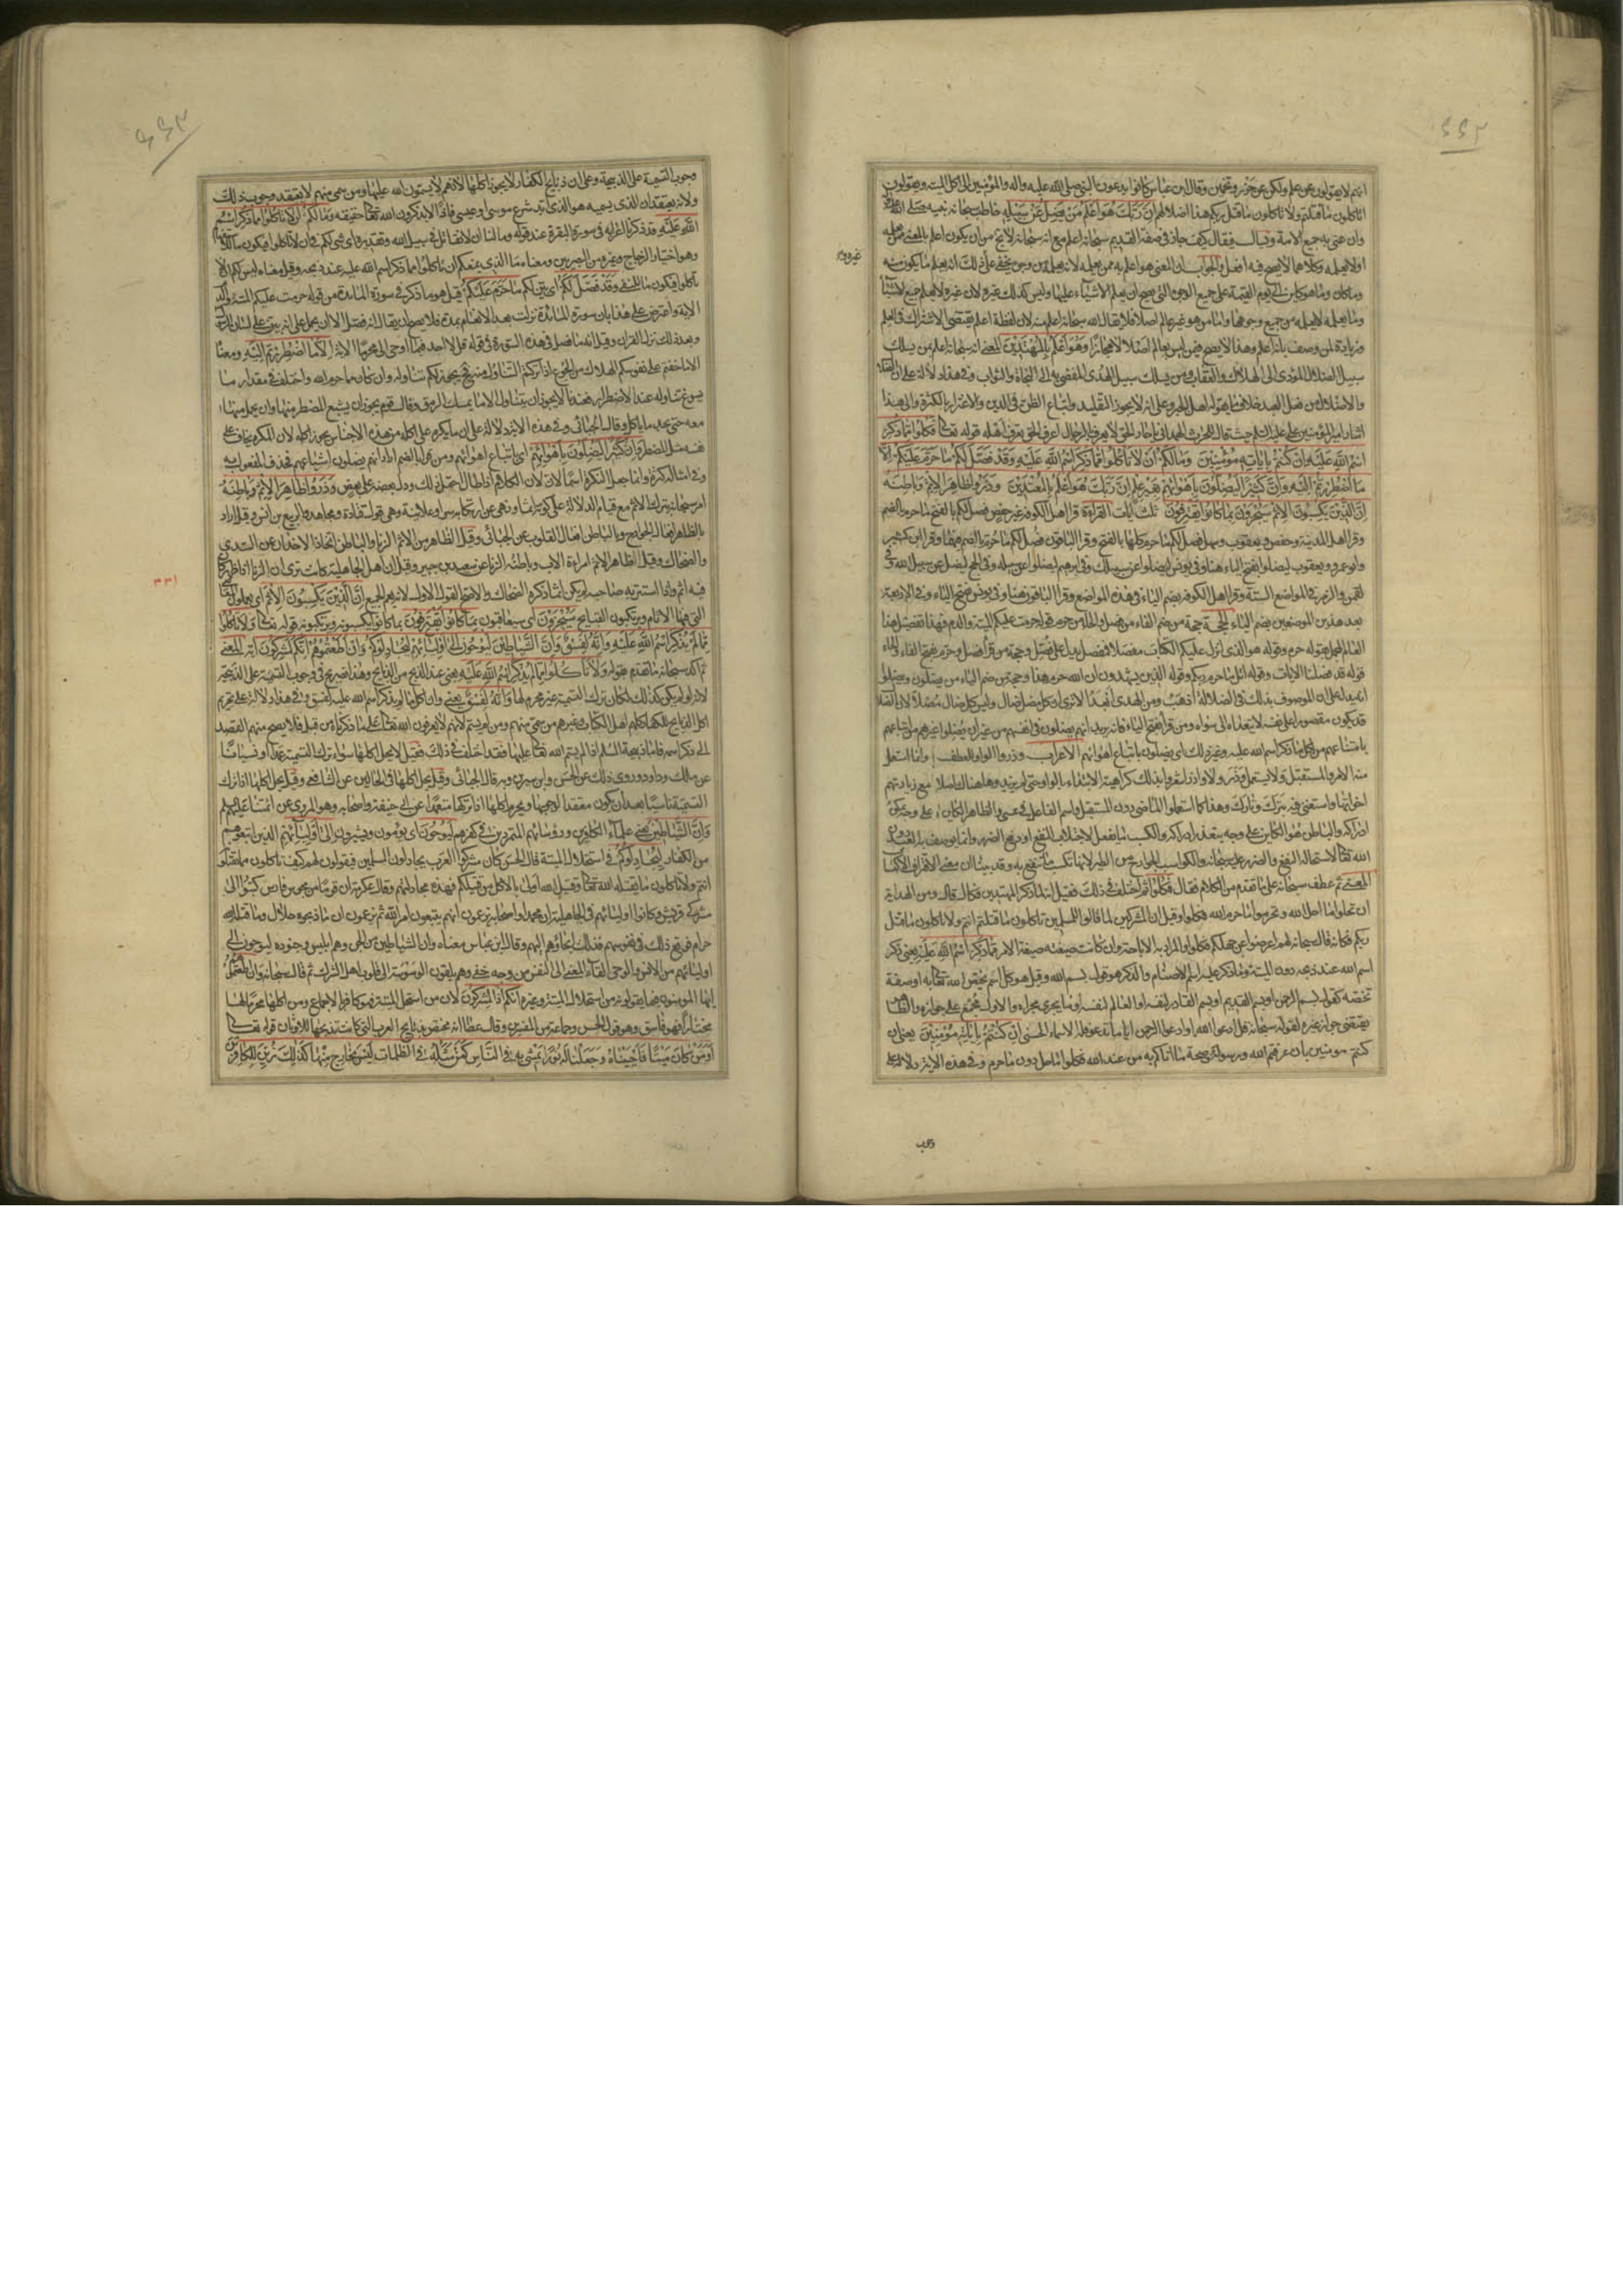 انهم لا يقولون عن علم ولكن عن خرص وتخمين وقال ابن عباس كانوا يدعون النبي صلى الله عليه واله والمؤمنين الى اكل الميتة ويقولون
اتاكلون ما قتلتم ولا تاكلون ما قتل ربكم فهذا اضلالهم ان ربك هو اعلم من يضل عن سبيله خاطب سبحانه نبيه صلى الله عليه
وان عنى به جميع الامة ويسال فيقال كيف جاز في صفة القديم سبحانه اعلم مع انه سبحانه لا يخ من ان يكون اعلم بالمعنى ممن يعلمه
او لا يعلمه وكلاهما لا يصح فيه افعل والجواب ان المعنى هو اعلم به ممن يعلمه لانه يعلمه من وجوه يخفى على ذلك انه يعلم ما يكون منه
وما كان وما هو كائن الى يوم القيمة على جميع الوجوه التي يصح ان يعلم الاشياء عليها وليس كذلك غيره لان غيره لا يعلم جميع الاشياء
وما يعلمه لا يعلمه من جميع وجوهها واما من هو غير عالم اصلا فلا يقال الله سبحانه اعلم منه لان لفظة اعلم يقتضي الاشتراك في العلم
ومزيادة لمن وصف بانه اعلم وهذا لا يصح فيمن ليس بعالم اصلا الا مجازا وهو اعلم بالمهتدين المعنى انه سبحانه اعلم بمن يسلك
سبيل الضلال المؤدي الى الهلاك والعقاب ومن يسلك سبيل الهدى المفضي به الى النجاة والثواب وفي هذا دلالة على ان الضلال
والاضلال من فعل العبد خلاف ما يقوله اهل الجبر وعلى انه لا يجوز التقليد واتباع الظن في الدين والاغترار بالكثرة والى هذا
اشار امير المؤمنين علي عليه السلام حيث قال للحرث الهمداني يا حار الحق لا يعرف بالرجال اعرف الحق تعرف اهله قوله تعالى فكلوا مما ذكر
اسم الله عليه ان كنتم باياته مؤمنين وما لكم ان لا تاكلوا مما ذكر اسم الله عليه وقد فصل لكم ما حرم عليكم الا
ما اضطررتم اليه وان كثيرا ليضلون باهوائهم بغير علم ان ربك هو اعلم بالمعتدين وذروا ظاهر الاثم وباطنه
ان الذين يكسبون الاثم سيجزون بما كانوا يقترفون ثلث ايات القراءة قرا اهل الكوفة غير حفص فصل لكم بالفتح ما حرم بالضم
وقرا اهل المدينة وحفص ويعقوب وسهل فصل لكم ما حرم كليهما بالفتح وقرا الباقون فصل لكم ما حرم بالضم فيهما وقرا ابن كثير
وابو عمرو ويعقوب ليضلوا بفتح الياء هنا وفي يونس ليضلوا عن سبيلك وفي ابرهيم ليضلوا عن سبيله وفي الحج ليضل عن سبيل الله وفي
لقمن والزمر في المواضع الستة وقرا اهل الكوفة بضم الياء في هذه المواضع وقرا الباقون هنا وفي يونس بفتح الياء وفي الاربعة
بعد هذين الموضعين بضم الياء الحجة حجة من ضم الفاء من فصل والحاء من حرم قوله حرمت عليكم الميتة والدم فهذا تفصيل هذا
العام المجمل بقوله حرم وقوله هو الذي انزل عليكم الكتاب مفصلا فمفصل يدل على فصل وحجة من قرا فصل وحرم بفتح الفاء والحاء
قوله قد فصلنا الايات وقوله اتل ما حرم ربكم وقوله الذين يشهدون ان الله حرم هذا وحجة من ضم الياء من يضلون ويضلوا
انه يدل على ان الموصوف بذلك في الضلالة اذهب ومن الهدى ابعد الا ترى ان كل مضل ضال وليس كل ضال مضلا لان الضلال
قد يكون مقصورا على نفسه لا يتعداه الى سواه ومن قرا بفتح الياء فانه يريد انهم يضلون في انفسهم من غير ان يضلوا غيرهم من اتباعهم
بامتناعهم من اكل ما ذكر اسم الله عليه وغير ذلك اي يضلون باتباع اهوائهم الاعراب وذروا الواو للعطف وانما استعمل
منه الامر والمستقبل ولا يستعمل وذر ولا واذر
اضراكه والباطن هو الكائن على وجه يتعذر ادراكه والكسب ما يفعل لاجتلاب النفع او دفع الضرر وانما يوصف به العبد دون
الله تعالى لاستحالة النفع والضرر عليه سبحانه والكواسب الجوارح من الطير لانها تكسب ما تنتفع به وقد بينا ان معنى الاقتراف الاكتساب
المعنى ثم عطف سبحانه على ما تقدم من الكلام فقال فكلوا ثم اختلف في ذلك فقيل انه لما ذكر المهتدين فكانه قال ومن الهداية
ان تحلوا ما احل الله وتحرموا ما حرم الله فكلوا وقيل ان المشركين لما قالوا للمسلمين تاكلون ما قتلتم انتم ولا تاكلون ما قتل
ربكم فكانه قال سبحانه لهم اعرضوا عن جهلكم فكلوا والمراد به الاباحة وان كانت صيغته صيغة الامر مما ذكر اسم الله عليه يعني ذكر
اسم الله عند ذبحه دون الميتة وما ذكر عليه اسم الاصنام والذكر هو قول بسم الله وقيل هو كل اسم يختص الله تعالى به او صفة
تخصه كقول بسم الرحمن او بسم القديم او بسم القادر لنفسه او العالم لنفسه وما يجري مجراه والاول مجمع على جوازه والظاهر
يقتضي جواز غيره لقوله سبحانه قل ادعوا الله او ادعوا الرحمن ايا ما تدعوا فله الاسماء الحسنى ان كنتم باياته مؤمنين يعني ان
كنتم مومنين بان عرفتم الله ورسوله وصحة ما اتاكم به من عند الله فكلوا ما احل دون ما حرم وفي هذه الاية دلالة على
وجوب
وجوب التسمية على الذبيحة وعلى ان ذبايح الكفار لا يجوز اكلها لانهم لا يسمون الله عليها ومن سمى منهم لا يعتقد وجوب ذلك
ولانه يعتقد ان الذي يسميه هو الذي ابد شرع موسى او عيسى فاذا لا يذكرون الله تعالى حقيقة وما لكم ان لا تاكلوا مما ذكر اسم
الله عليه قد ذكرنا اعرابه في سورة البقرة عند قوله وما لنا ان لا نقاتل في سبيل الله وتقديره اي شيء لكم في ان لا تاكلوا فيكون ما للاستفهام
وهو اختيار الزجاج وغيره من البصريين ومعناه ما الذي يمنعكم ان تاكلوا مما ذكر اسم الله عليه عند ذبحه وقيل معناه ليس لكم ان لا
تاكلوا فيكون ما للنفي وقد فصل لكم اي بين لكم ما حرم عليكم قيل هو ما ذكر في سورة المائدة من قوله حرمت عليكم الميتة والدم
الاية واعترض على هذا بان سورة المائدة نزلت بعد الانعام بمدة فلا يصح ان يقال انه فصل الا ان يحمل على انه بين على لسان الرسول
وبعد ذلك نزل القران وقيل انه ما فصل في هذه السورة في قوله قل لا اجد فيما اوحي الي محرما الاية الا ما اضطررتم اليه ومعناه
الا ما خفتم على نفوسكم الهلاك من الجوع اذا تركتم التناول منه فح يجوز لكم تناوله وان كان مما حرمه الله واختلف في مقدار ما
يسوغ تناوله عند الاضطرار فعندنا لا يجوز ان يتناول الا ما يمسك الرمق وقال قوم يجوز ان يشبع المضطر منها وان يحمل منها
معه حتى يجد ما ياكل وقال الجبائي وفي هذه الاية دلالة على ان ما يكره على اكله من هذه الاجناس يجوز اكله لان المكره يخاف على
نفسه مثل المضطر وان كثيرا ليضلون باهوائهم اي باتباع اهوائهم ومن قرا بالضم اراد انهم يضلون اشياعهم فحذف المفعول به
وفي امثاله كثرة وانما جعل النكرة اسما لان الكلام اذا طال احتمل ذلك ودل بعضه على بعض وذروا ظاهر الاثم وباطنه
امر سبحانه بترك الاثم مع قيام الدلالة على كونه اثما ونهى عن ارتكابه سرا وعلانية وهو قول قتادة ومجاهد والربيع بن انس وقيل اراد
بالظاهر افعال الجوارح وبالباطن افعال القلوب عن الجبائي وقيل الظاهر من الاثم الزنا والباطن اتخاذ الاخدان عن السدي
والضحاك وقيل ظاهر الاثم امراة الاب وباطنه الزنا عن سعيد بن جبير وقيل ان اهل الجاهلية كانت ترى ان الزنا اذا ظهر كان
فيه اثم واذا استتر به صاحبه لم يكن اثما ذكره الضحاك والاصح القول الاول لانه يعم الجميع ان الذين يكسبون الاثم اي يعملون المعاصي
التي فيها الاثام ويرتكبون القبايح سيجزون اي سيعاقبون بما كانوا يقترفون بما كانوا يكسبونه ويرتكبونه قوله تعالى ولا تاكلوا
مما لم يذكر اسم الله عليه وانه لفسق وان الشياطين ليوحون الى اوليائهم ليجادلوكم وان اطعتموهم انكم لمشركون اية المعنى
ثم اكد سبحانه ما تقدم بقوله ولا تاكلوا مما لم يذكر اسم الله عليه يعني عند الذبح من الذبايح وهذا تصريح في وجوب التسمية على الذبيحة
لانه لو لم يكن كذلك لكان ترك التسمية غير محرم لها وانه لفسق يعني وان اكل ما لم يذكر اسم الله عليه لفسق وفي هذا دلالة على تحريم
اكل ذبايح الكفار كلهم اهل الكتاب وغيرهم من سمى منهم ومن لم يسم لانهم لا يعرفون الله تعالى على ما ذكرناه من قبل فلا يصح منهم القصد
الى ذكر اسمه فاما ذبيحة المسلم اذا لم يسم الله تعالى عليها فقد اختلف في ذلك فقيل لا يحل اكلها سواء ترك التسمية عمدا او نسيانا
عن ملك وداود وروي ذلك عن الحسن وابن سيرين وبه قال الجبائي وقيل يحل اكلها في الحالين عن الشافعي وقيل يحل اكلها اذا ترك
التسمية ناسيا بعد ان يكون معتقدا لوجوبها ويحرم اكلها اذا تركها متعمدا عن ابي حنيفة واصحابه وهو المروي عن ائمتنا عليهم السلام
وان الشياطين يعني علماء الكافرين ورؤسائهم المتمردين في كفرهم ليوحون اي يومون ويشيرون الى اوليائهم الذين اتبعوهم
من الكفار ليجادلوكم في استحلال الميتة قال الحسن كان مشركوا العرب يجادلون المسلمين فيقولون لهم كيف تاكلون مما تقتلونه
انتم ولا تاكلون ما يقتله الله تعالى وقتيل الله اولى بالاكل من قتيلكم فهذه مجادلتهم وقال عكرمة ان قوما من مجوس فارس كتبوا الى
مشركي قريش وكانوا اوليائهم في الجاهلية ان محمدا واصحابه يزعمون انهم يتبعون امر الله ثم يزعمون ان ما ذبحوه حلال وما قتله الله
حرام فوقع ذلك في نفوسهم فذلك ايحاؤهم اليهم وقال ابن عباس معناه وان الشياطين من الجن وهم ابليس وجنوده ليوحون الى
اوليائهم من الانس والوحي القاء المعنى الى النفس من وجه خفي وهم يلقون الوسوسة الى قلوب اهل الشرك ثم قال سبحانه وان اطعتموهم
ايها المومنون فيما يقولونه من استحلال الميتة وغيره انكم اذا لمشركون لان من استحل الميتة فهو كافر بالاجماع ومن اكلها محرما لها
مختارا فهو فاسق وهو قول الحسن وجماعة من المفسرين وقال عطا انه مختص بذبايح العرب التي كانت تذبحها للاوثان قوله تعالى
اومن كان ميتا فاحييناه وجعلنا له نورا يمشي به في الناس كمن مثله في الظلمات ليس بخارج منها كذلك زين للكافرين